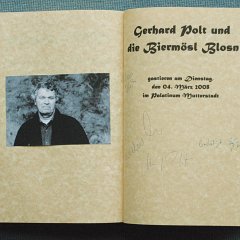 Gerhard Polt und
die Biermösl Blosn
gastieren am Dienstag,
den 04. März 2008
im Palatinum Mutterstadt